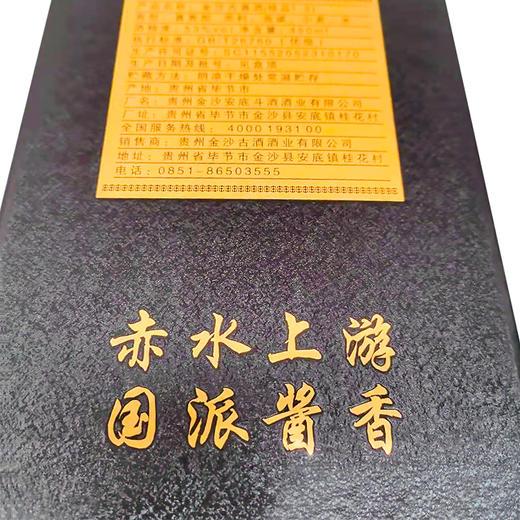 产品标准：GB/T26760（优级）
生产日期及批号：见盒顶
贮藏方法：阴凉干燥处常温贮存
产地：贵州省毕节市
厂名：贵州金沙安底斗酒酒业有限公司
厂址：贵州省毕节市金沙县安底镇桂花村
全国服务热线：4000193100
销售商：贵州金沙古酒酒业有限公司
地址：贵州省毕节市金沙县安底镇桂花村
电话：0851-86503555
赤水上游
国派酱香